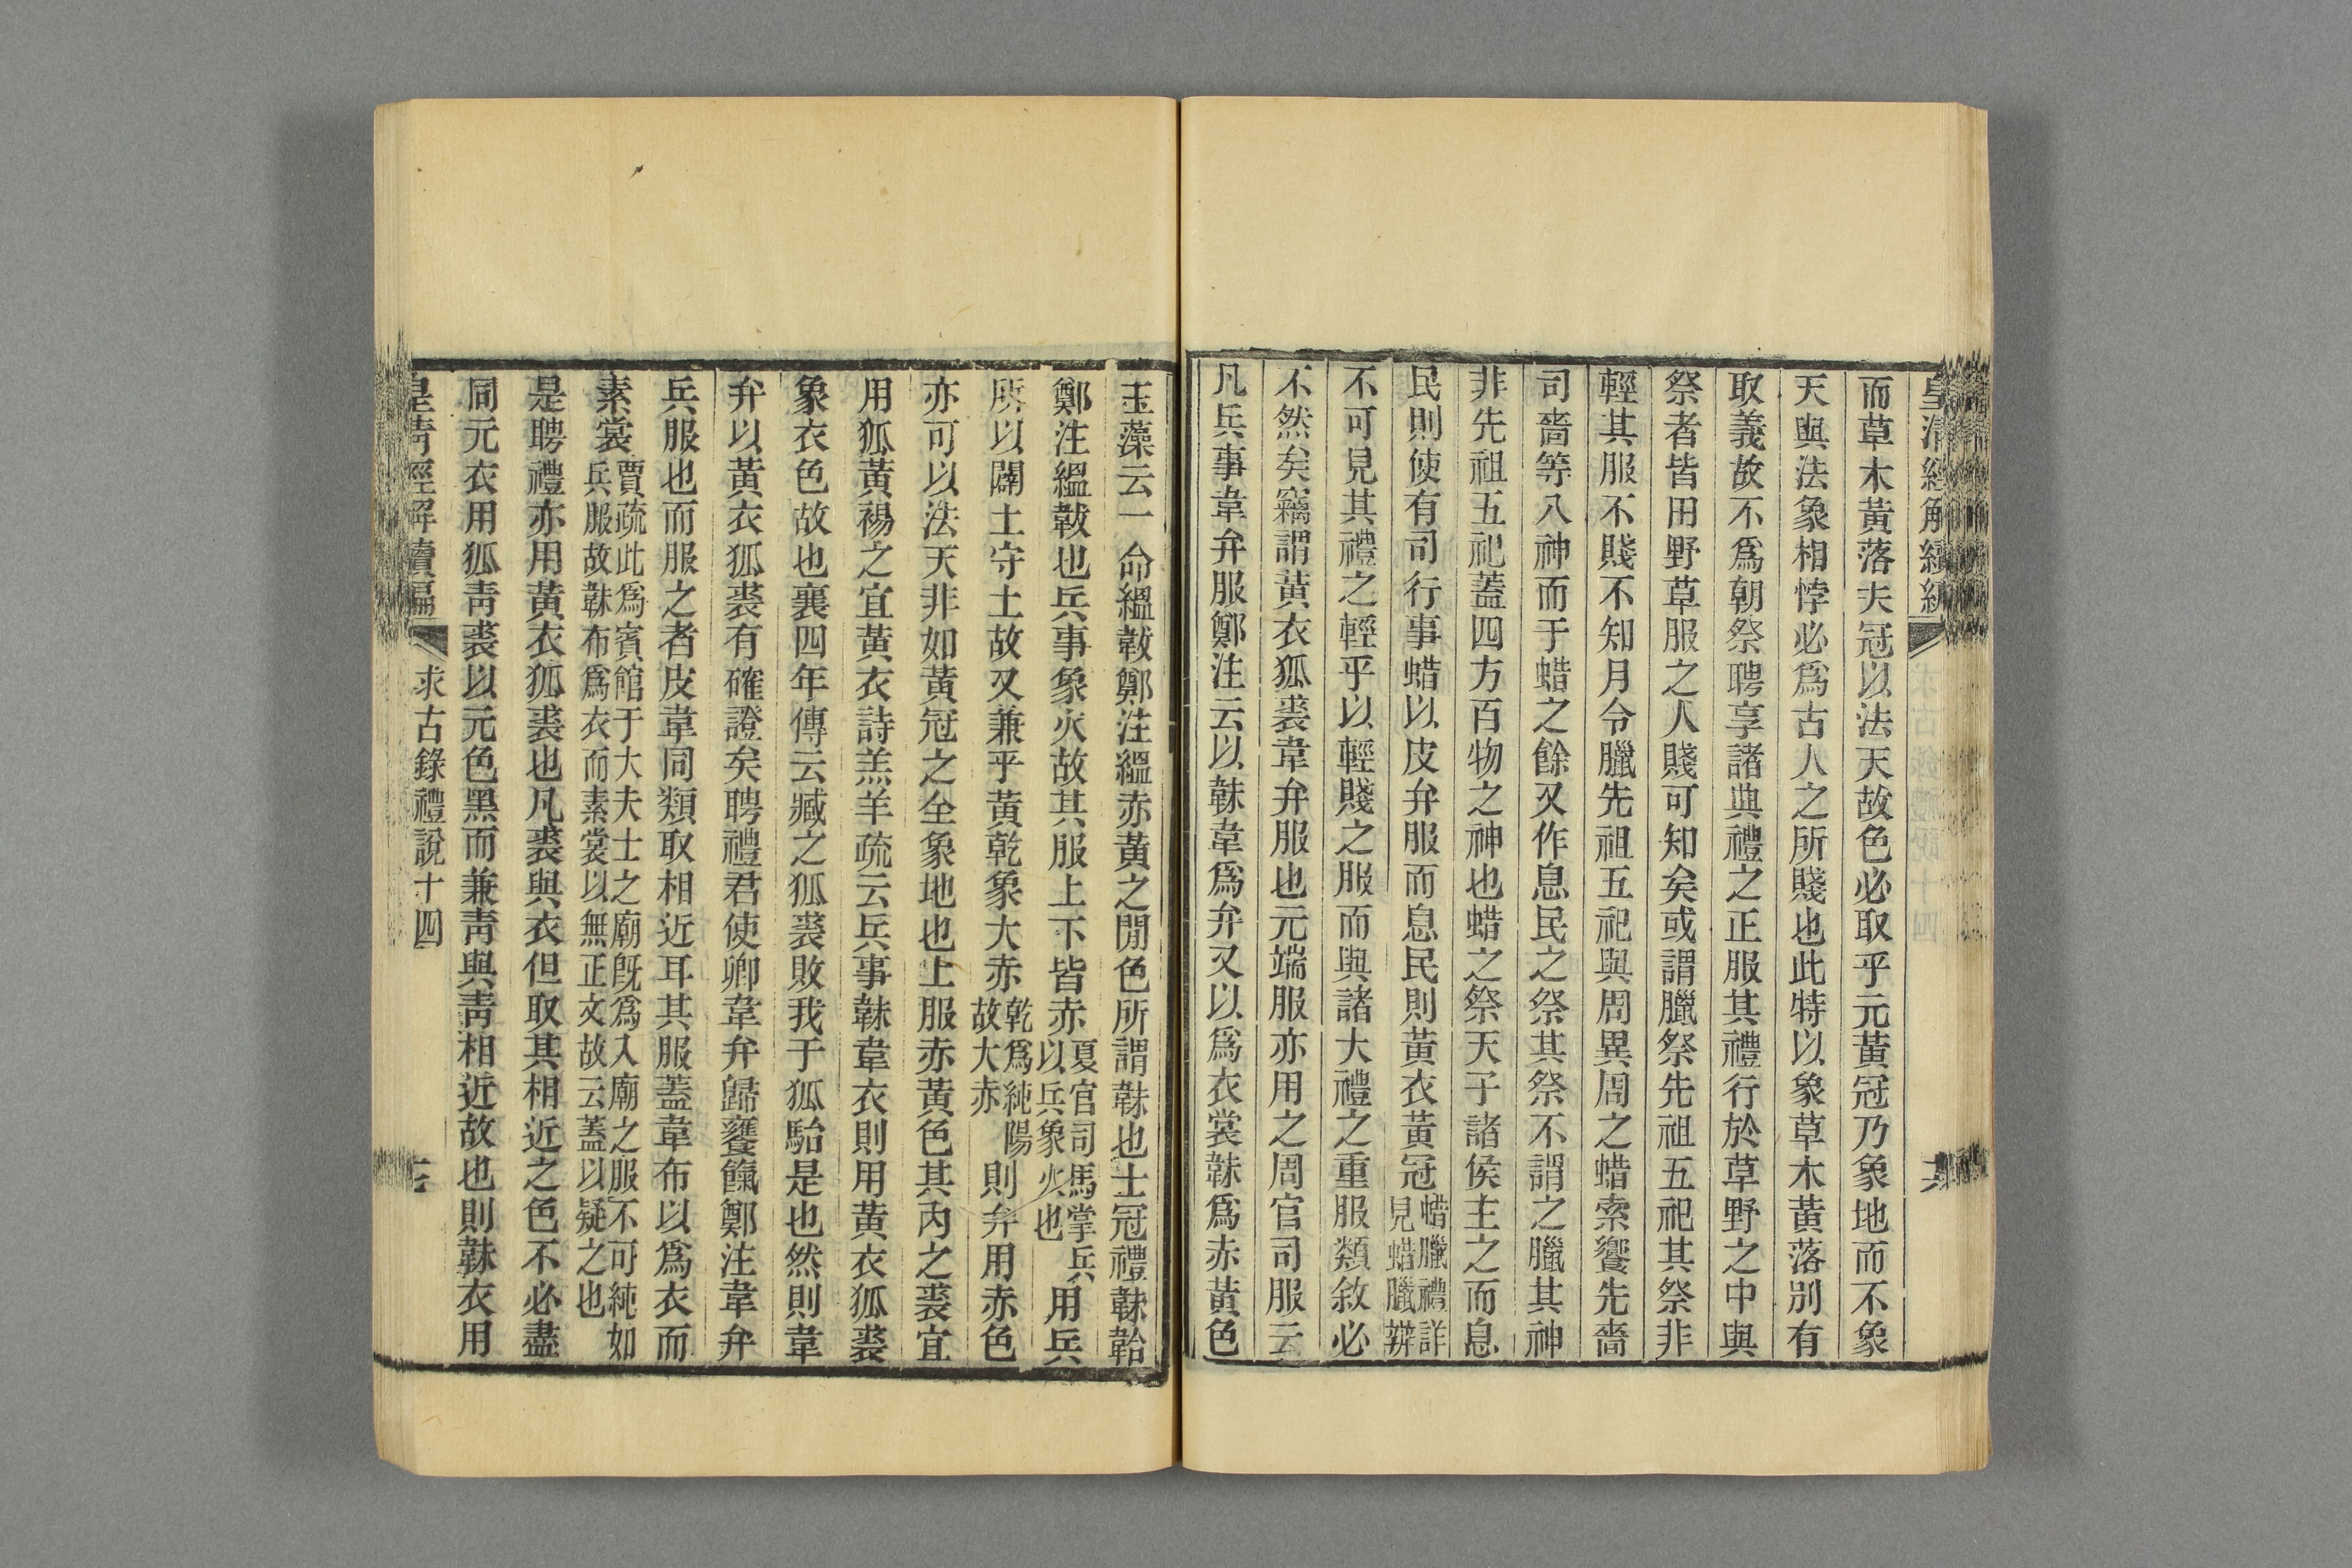 皇清經解續編
而草木黃落夫冠以法天故色必取乎元黃冠乃象地而不象
天與法象相悖必爲古人之所賤也此特以象草木黃落別有
取義故不爲朝祭聘享諸典禮之正服其禮行於草野之中與
祭者皆田野草服之人賤可知矣或謂臘祭先祖五祀其祭非
輕其服不賤不知月令臘先祖五祀與周異周之蜡索饗先嗇
司嗇等八神而于蜡之餘又作息民之祭其祭不謂之臘其神
非先祖五祀蓋四方百物之神也蜡之祭天子諸侯主之而息
民則使有司行事蜡以皮弁服而息民則黃衣黃冠蜡臘禮詳見蜡臘辨
不可見其禮之輕乎以輕賤之服而與諸大禮之重服類敘必
不然矣竊謂黃衣狐裘韋弁服也元端服亦用之周官司服云
凡兵事韋弁服鄭注云以韎韋爲弁又以爲衣裳韎爲赤黃色
玉藻云一命縕韍鄭注縕赤黃之閒色所謂韎也士冠禮韎韐
鄭注縕韍也兵事象火故其服上下皆赤夏官司馬掌兵以兵象火也用兵
所以闢土守土故又兼乎黃乾象大赤乾爲純陽故大赤則弁用赤色
亦可以法天非如黃冠之全象地也上服赤黃色其內之裘宜
用狐黃裼之宜黃衣詩羔羊疏云兵事韎韋衣則用黃衣狐裘
象衣色故也襄四年傳云臧之狐裘敗我于狐駘是也然則韋
弁以黃衣狐裘有確證矣聘禮君使卿韋弁歸饔餼鄭注韋弁
兵服也而服之者皮韋同類取相近耳其服蓋韋布以爲衣而
素裳賈疏此爲賓館于大夫士之廟旣爲入廟之服不可純如兵服故韎布爲衣而素裳以無正文故云蓋以疑之也
是聘禮亦用黃衣狐裘也凡裘與衣但取其相近之色不必盡
同元衣用狐靑裘以元色黑而兼靑與靑相近故也則韎衣用
皇清經解續編 求古錄禮說十四